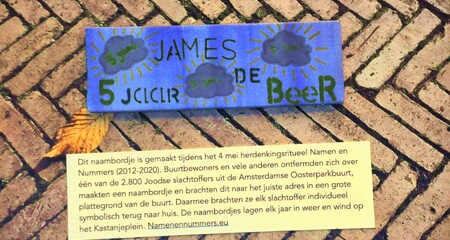 JAMES
5 JAAR DE BeeR
Dit naambordje is gemaakt tijdens het 4 mei herdenkingsritueel Namen en
Nummers (2012-2020). Buurtbewoners en vele anderen ontfermden zich over
één van de 2.800 Joodse slachtoffers uit de Amsterdamse Oosterparkbuurt,
maakten een naambordje en brachten dit naar het juiste adres in een grote
plattegrond van de buurt. Daarmee brachten ze elk slachtoffer individueel
symbolisch terug naar huis. De naambordjes lagen elk jaar in weer en wind op
het Kastanjeplein. Namenennummers.eu